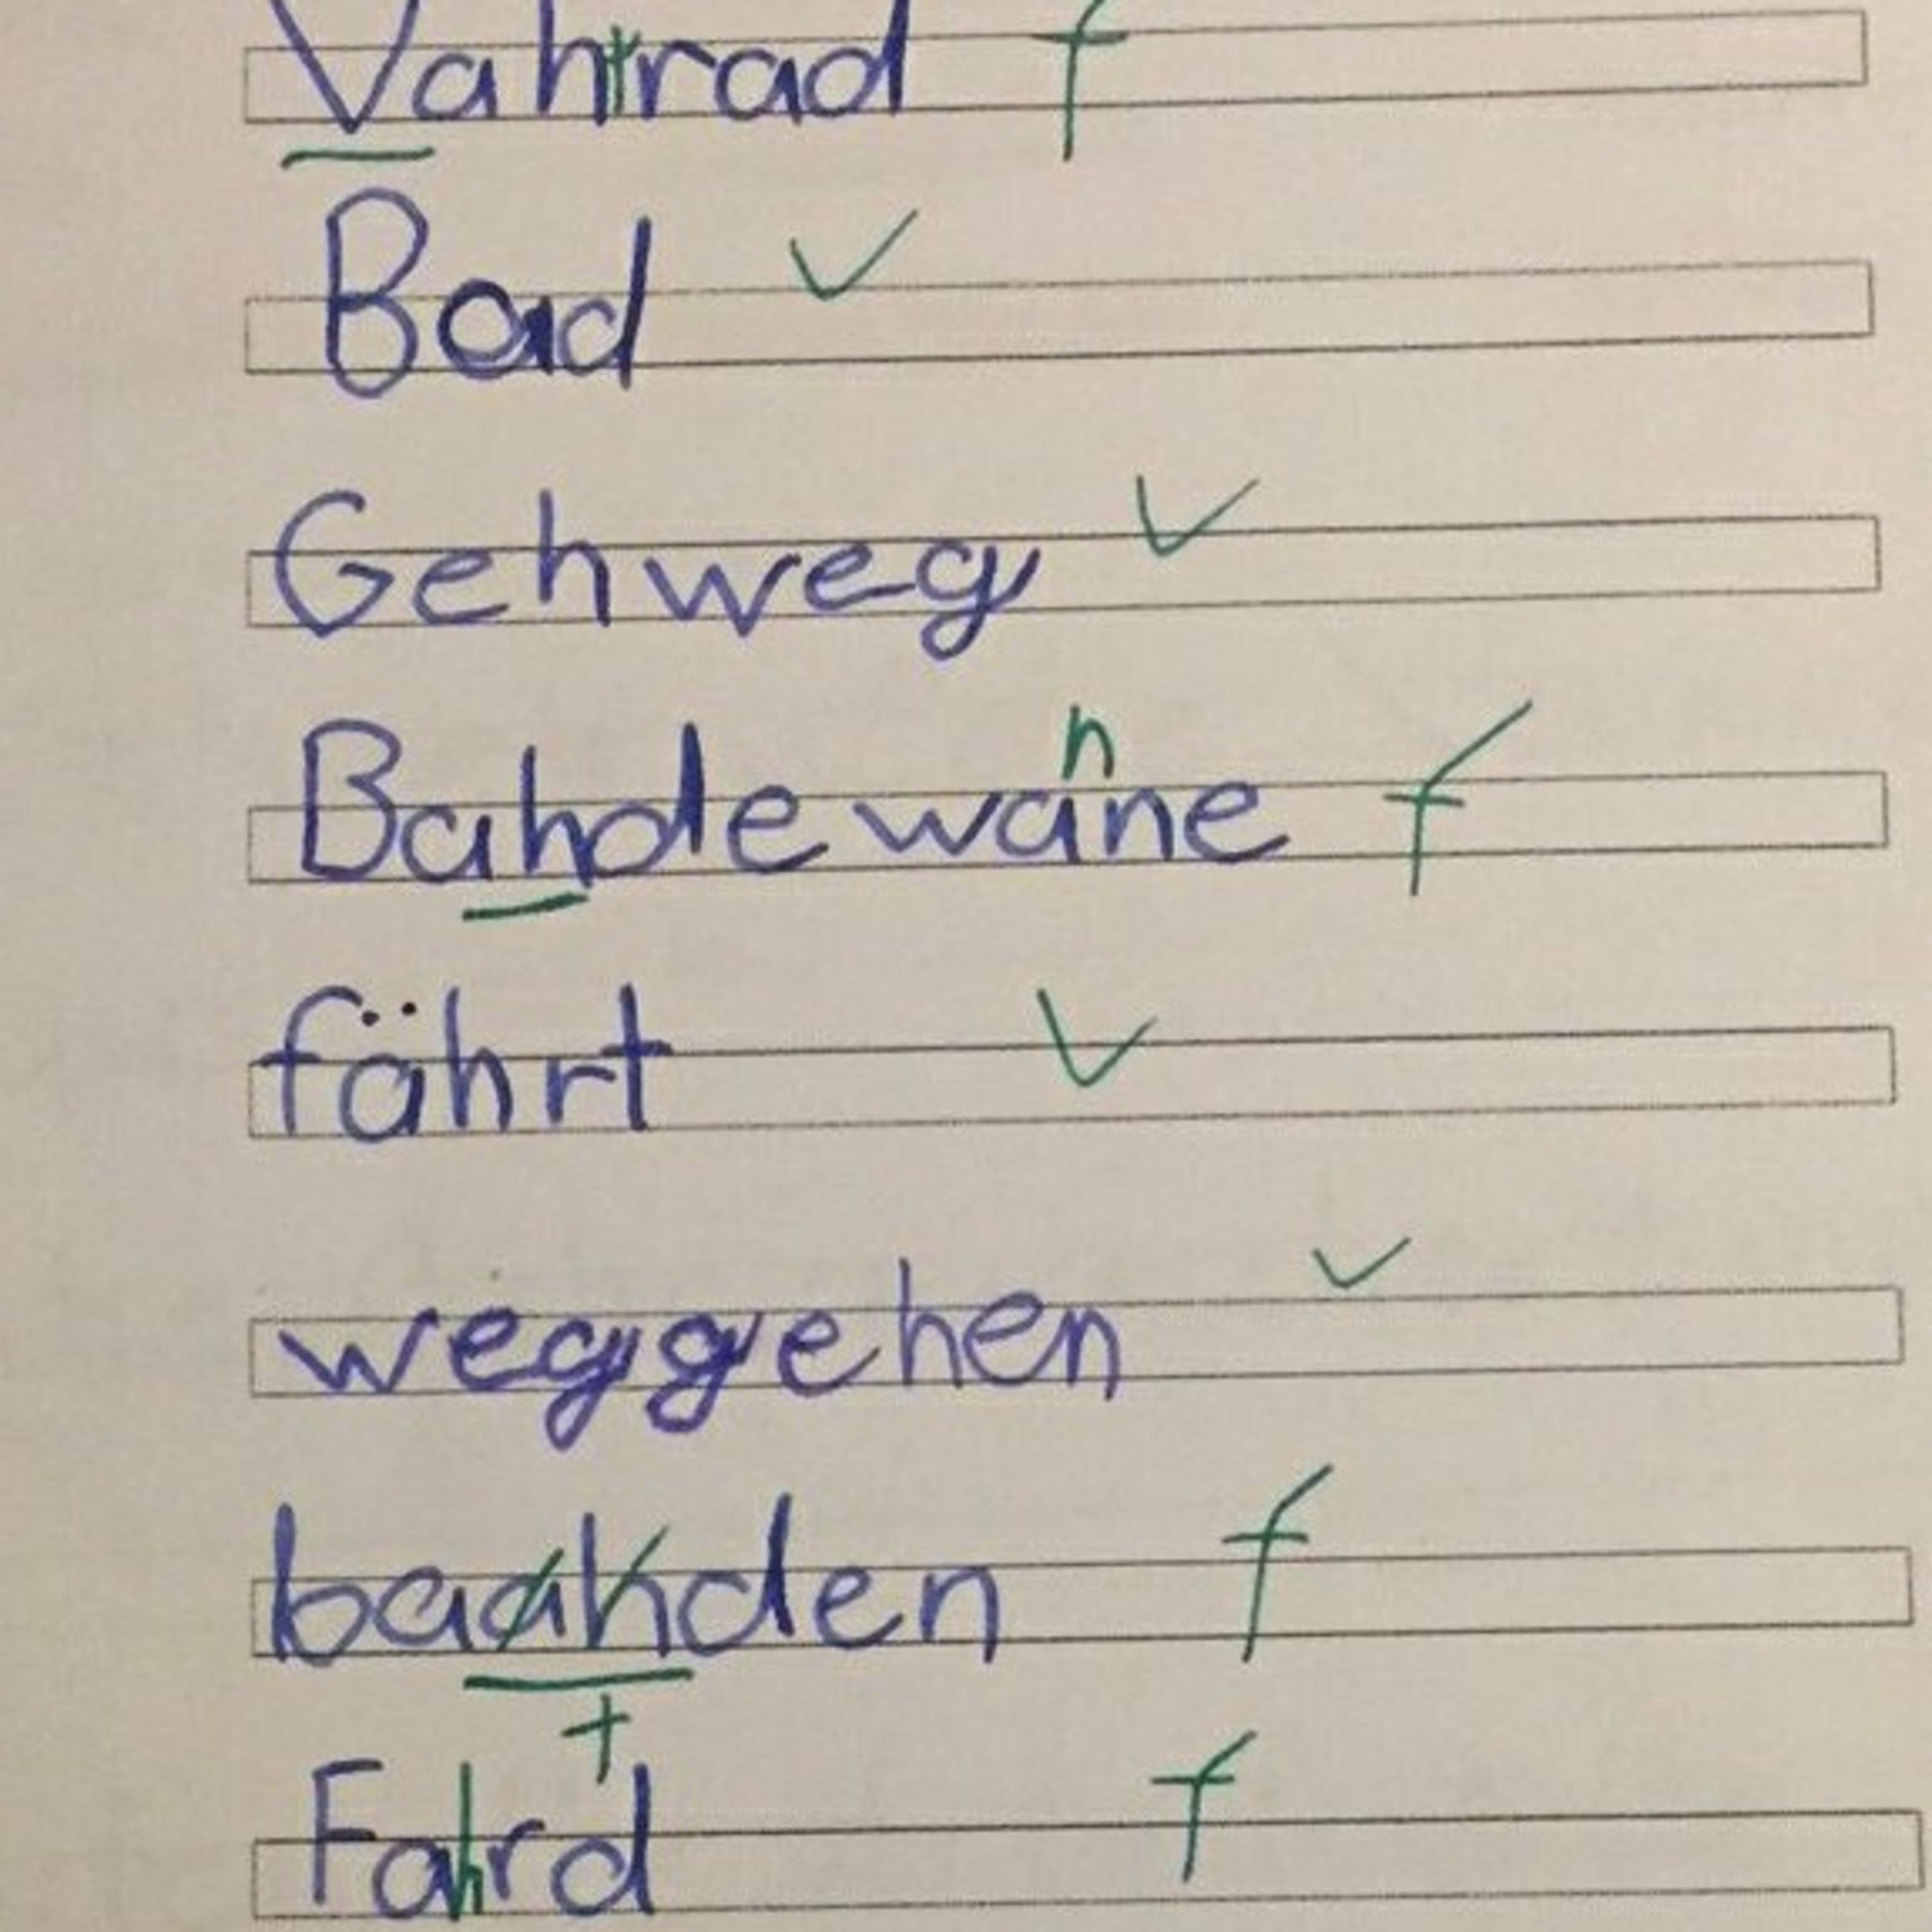 Vahrrad f
Bad ✓
Gehweg ✓
n
Bahdewane f
fährt ✓
weggehen ✓
baahden f
t
Fahrd f